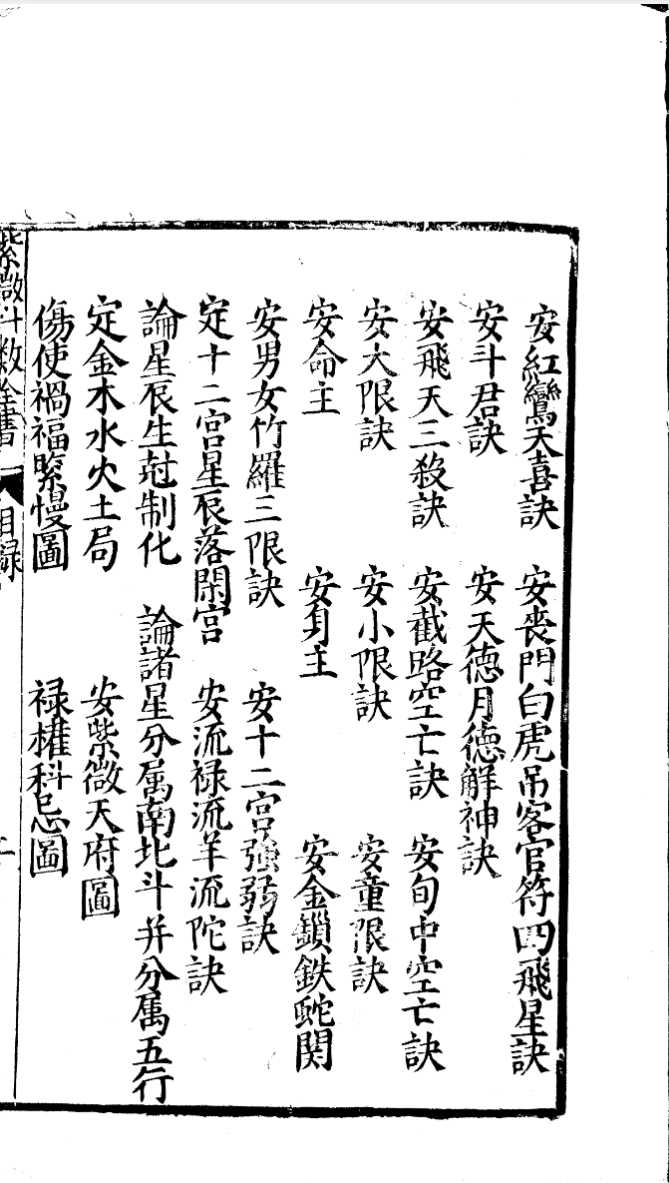 安紅鸞天喜訣 安喪門白虎吊客官符四飛星訣
安斗君訣 安天德月德解神訣
安飛天三殺訣 安截路空亡訣 安旬中空亡訣
安大限訣 安小限訣 安童限訣
安命主 安身主 安金鎖鉄蛇関
安男女竹羅三限訣 安十二宮強弱訣
定十二宮星辰落閑宮 安流禄流羊流陀訣
論星辰生尅制化 論諸星分属南北斗并分属五行
定金木水火土局 安紫微天府圖
傷使禍福緊慢圖 禄權科忌圖
紫微斗数全書 目録